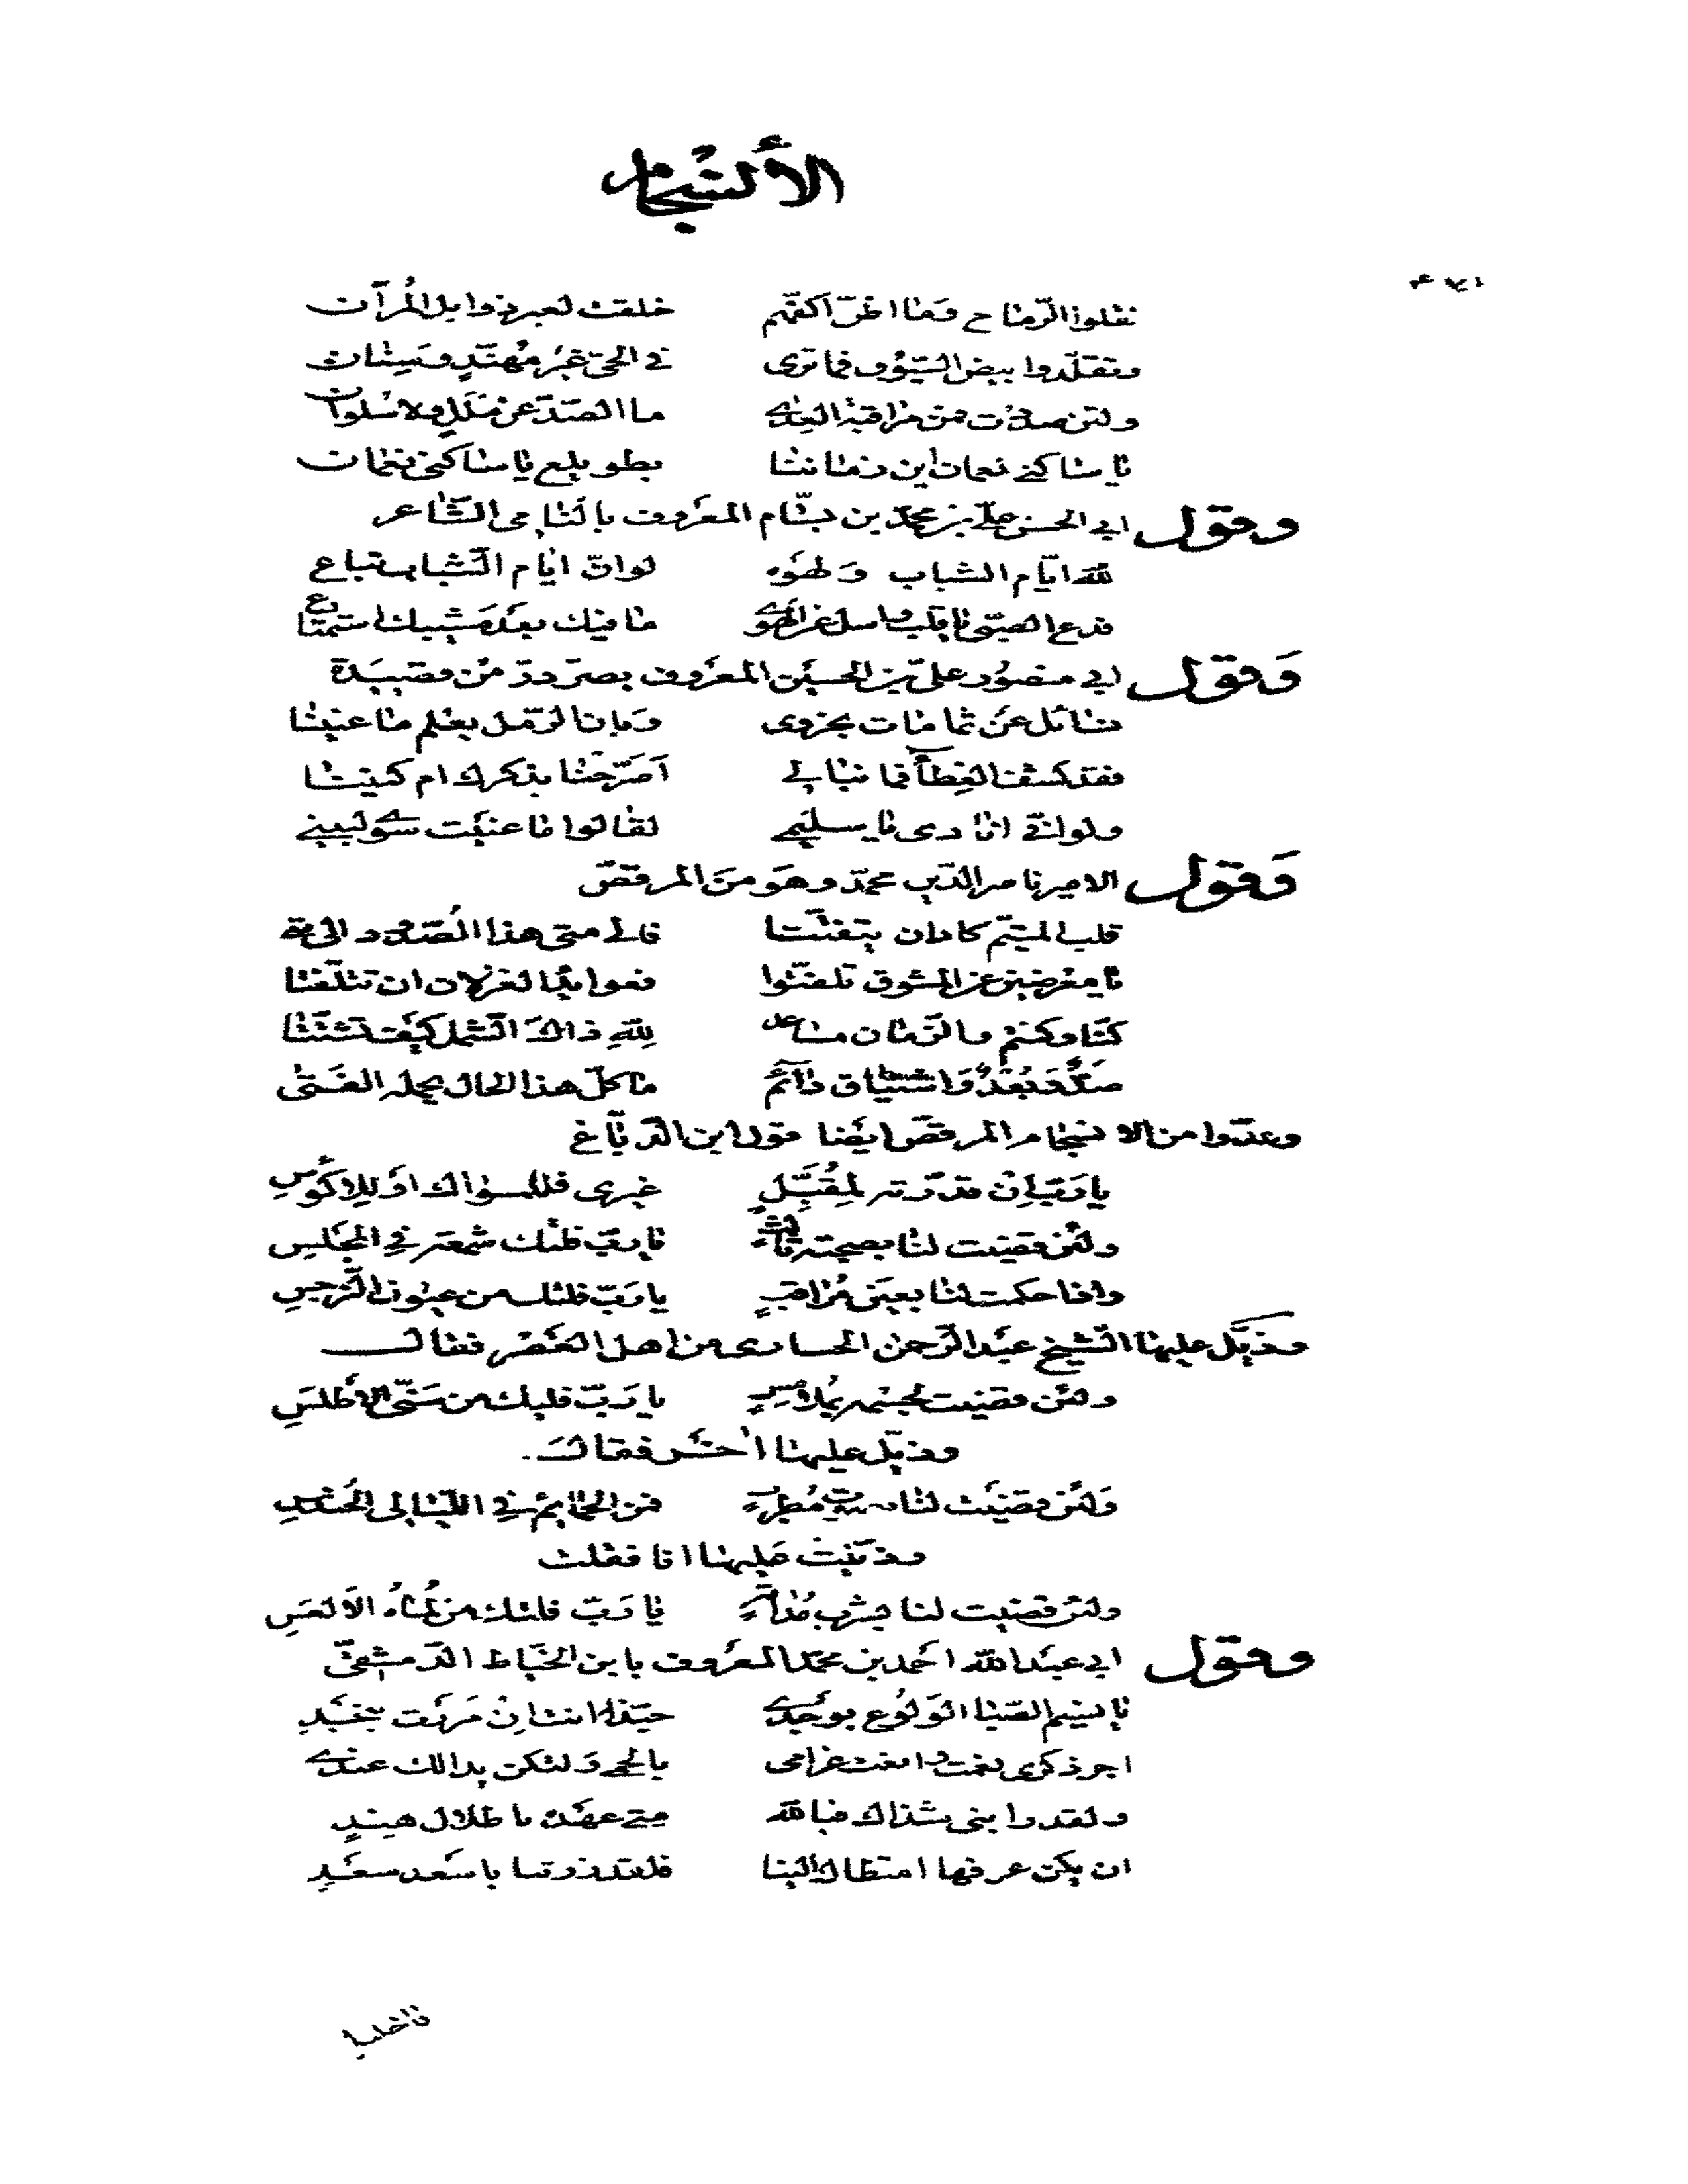 الأنسجام
نقلوا الرّماح وَما اظنّ اَكفّهم خلقت لغير ذوابل المُرّان
وتقلّدوا بيض السّيُوف فما ترى في الحىّ غيْر مُهنّدٍ وَسِنان
ولئن صددْت فمن مراقبة العِدى ما الصّدّ عن مَلَلٍ ولا سُلوان
يا ساكنى نعمان اين زماننا بطويلع يا ساكنى نعمان
وقول ابي الحسن علىّ بن محمّد بن بسّام المعْروف بالسّامى الشّاعر
لله ايّام الشباب وَلهْوه لو انّ ايّام الشّباب تباع
فدع الصبّى يا قلب واسل عن الهوى ما فيك بعْد مَشيبك استمتاع
وَقول ابي منصوُر علىّ بن الحسيْن المعْروف بصرّ درّ منْ قصيَدة
نسائل عنْ ثمامات بحزوى وَبان الرّمل يعْلم ما عنينا
فقد كشف الغِطآء فما نبالي اَصَرّحْنا بذكرك ام كنينا
ولو انّي انادى يا سليمى لقالوا ما عنيْت سوى لبينى
وَقول الامير ناصر الدّين محمّد وهَو منَ المرقصّ
قلب المتيّم كاد ان يتفتّتا فالى متى هذا الصّدُود الى متى
يا معْرضين عن المشوق تلفتّوا فعوايد الغزلان ان تتلّفتا
كنّا وكنتم والزّمان مساعد لِلّهِ ذاك الشّمل كيْف تشتّتا
صَدٌّ وَبُعْدٌ وَاشتياق دآئمٌ ما كلّ هذا الحال يحمله الفَتى
وعدّوا من الانسجام المرقصّ ايْضا قول ابن الدّبّاغ
يا رَبّ اِنْ قدّرته لمِقُبّلٍ غيرى فللمسواك اوْ للِاكؤسِ
ولئن قضيت لنا بصحبته ثالثٍ يا ربّ فليْك شمعة في المجْلسِ
واذا حكمت لنا بعيَن مُراقبٍ يا رَبّ فليك من عيون النّرجسِ
وذيّل عليها الشّيخ عبْد الرّحمن الحسادى من اهل العَصْر فقال
ولئن قضيت لجسْمه بمُلامسٍ يا رَبّ فليك من سَنى الاطلسَ
وذيّل عليها اخَر فقالَ.
وَلئن قضيْت لنا بصوت مُطربٍ فمن الحمايم في اللّيالى الحنْدسِ
وذيّلت عَليها انا فقلت
ولئن قضيت لنا بشرب مُدامةٍ يا رَبّ فليك من لمُاهُ الاَلعَسِ
وقول ابي عبْد الله احْمد بن محمّد المعْروف بابن الخيّاط الدّمشقىّ
يا نسيم الصّبا الوَلوُع بوجْدى حبّذا انت اِنْ مَررْت بنجْدِ
اجر ذكرى نعمت وانعت غرامى بالحمى وَلتكن يدا لك عندى
ولقد رابنى شذاك فبالله متى عهْده باطلال هنِدٍ
ان يكن عرفها امتطاك الينا فلقد زرتنا باسْعد سعْدِ